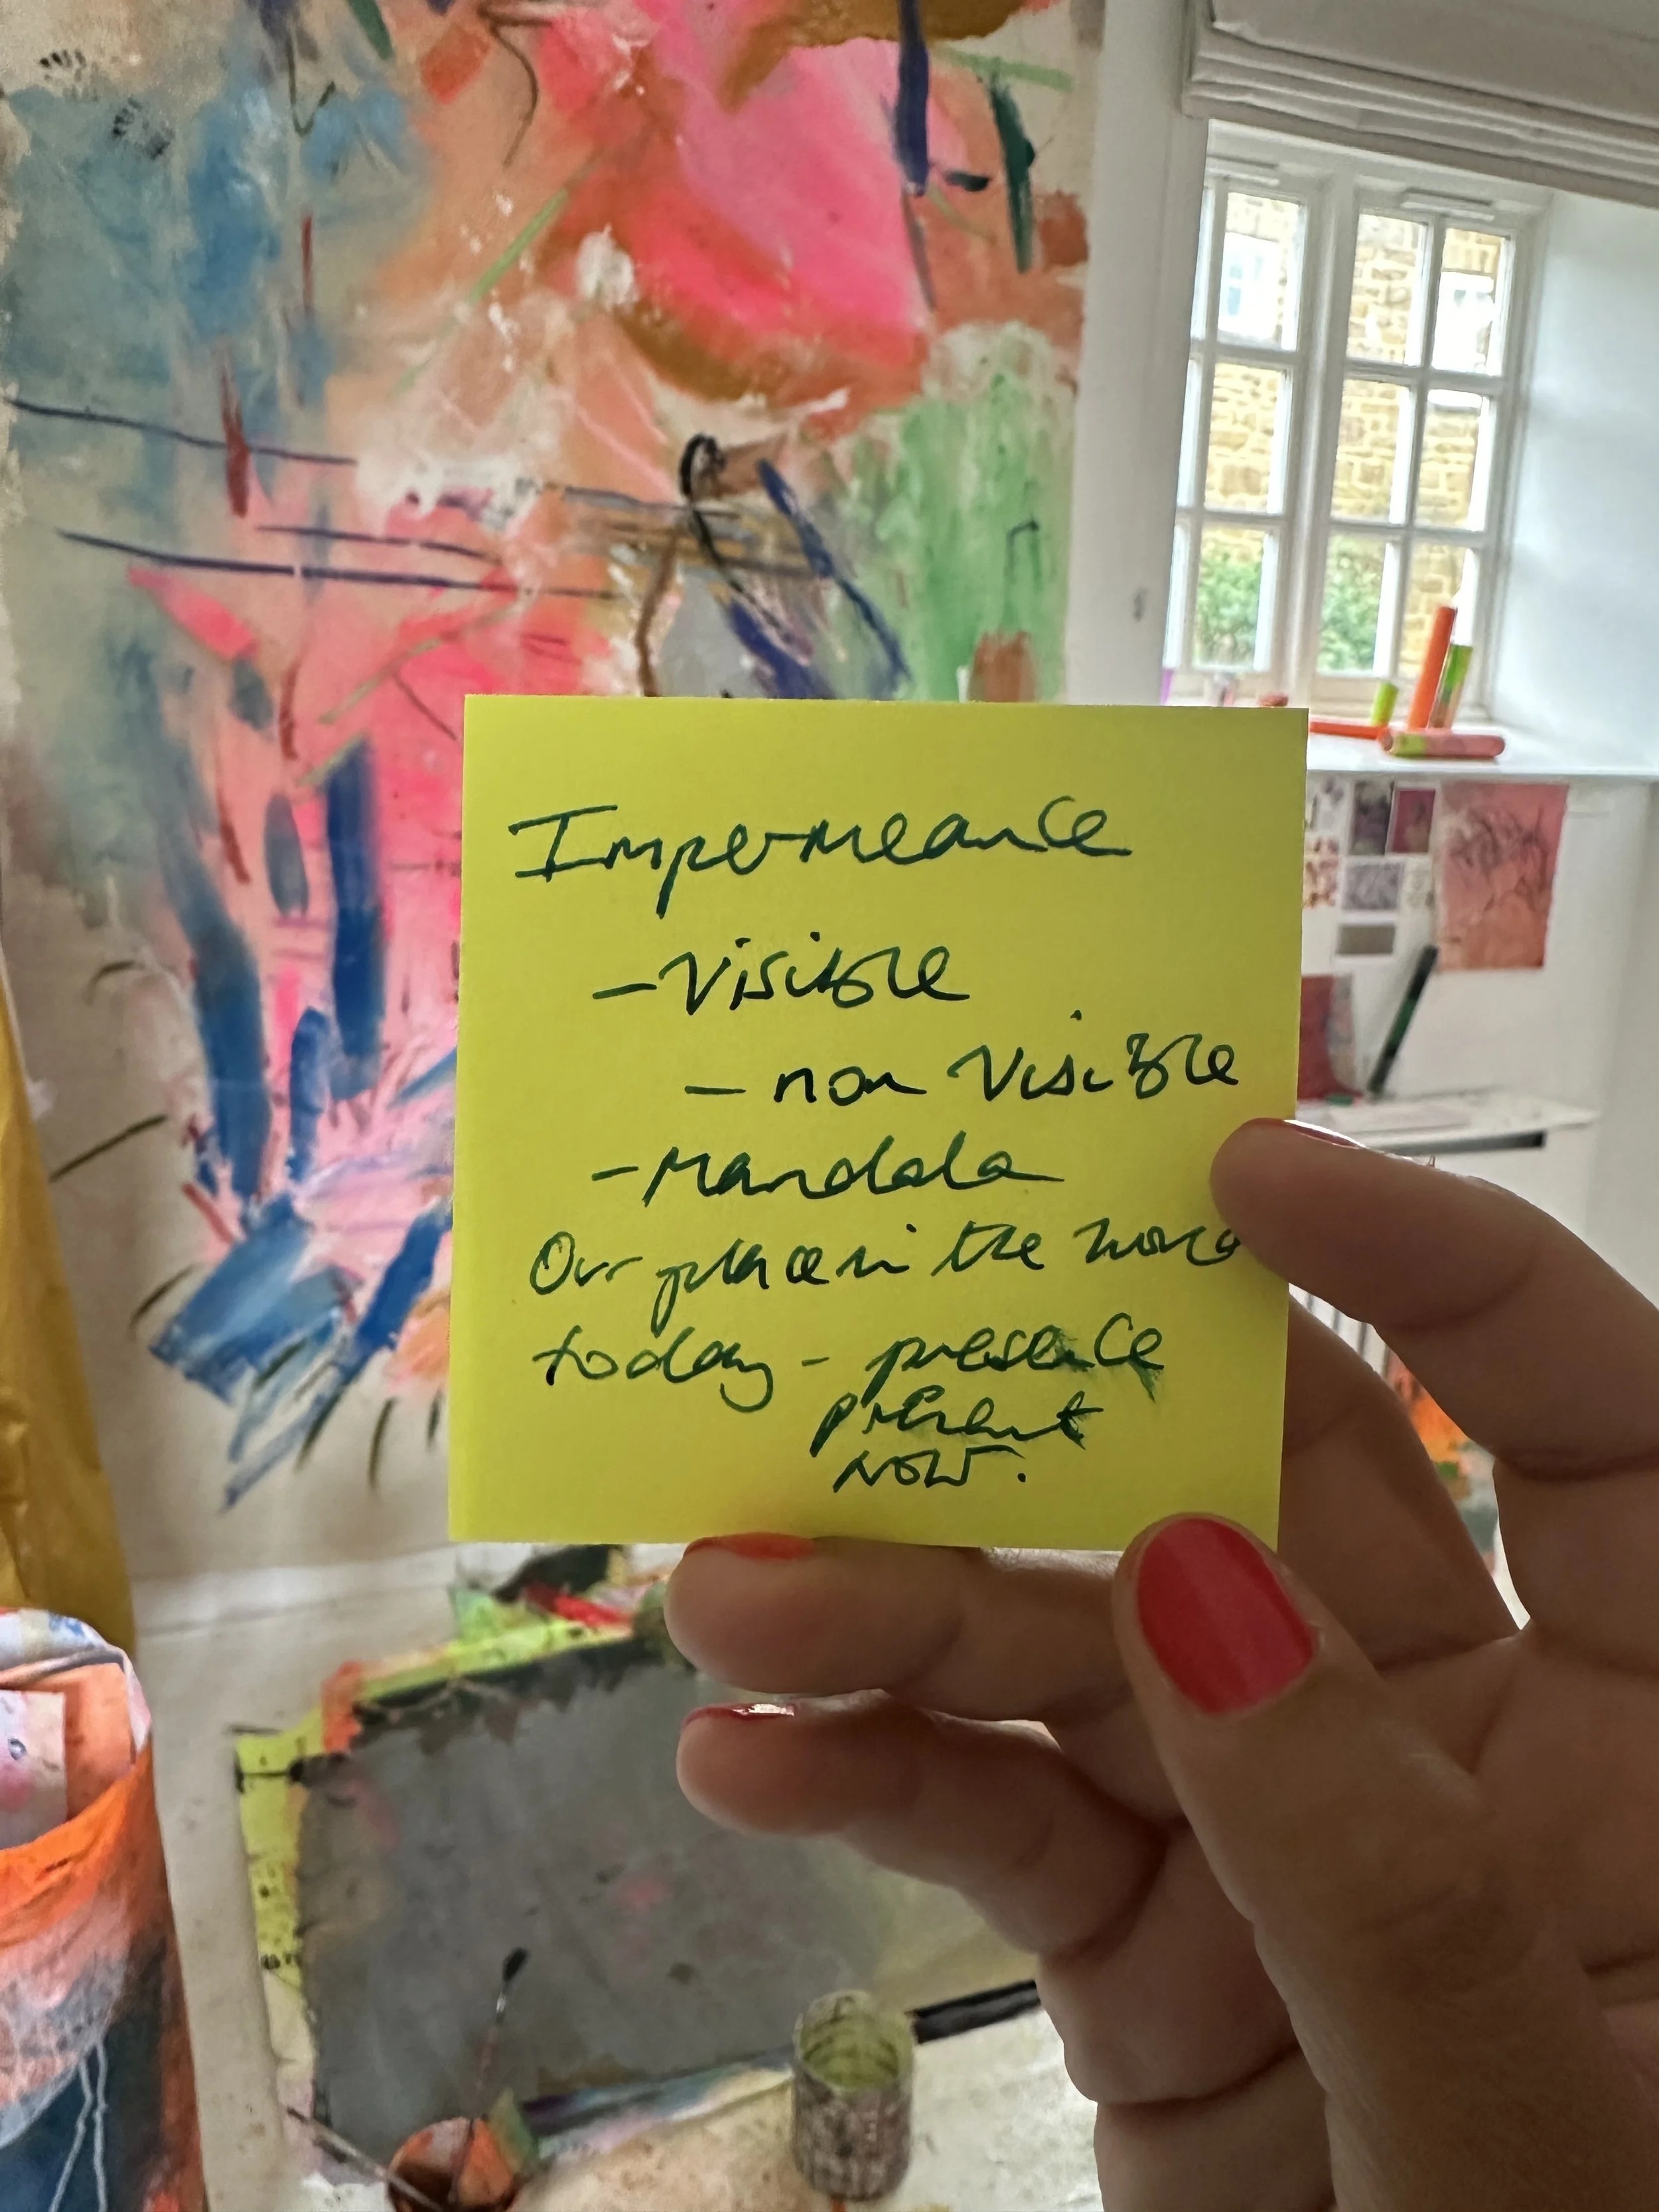 Impermeance
- Visible
- non Visible
- Mandala
Our place in the world
today - presence
present
NOW.